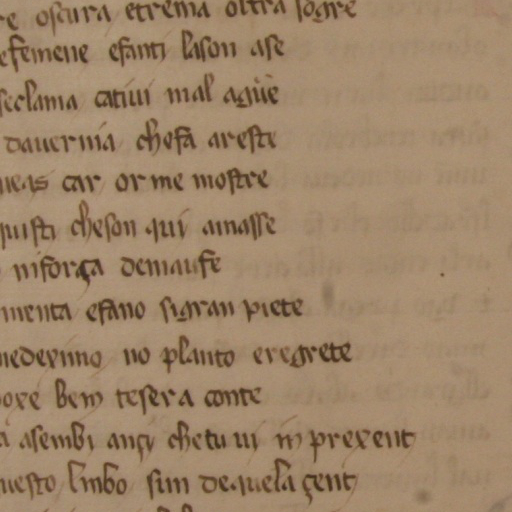 re oscura etrema oltra sogre
efemene efanti lason ase
seclama cativi mal aguie
davernia chefa areste
ueas car or me mostre
quisti cheson qui amasse
niforça demaufe
menta efano sigran piete
medeximo no planto eregrete
boxe ben tesera conte
a asembiançi che tu vi in prexent
uesto limbo sun de quela çent